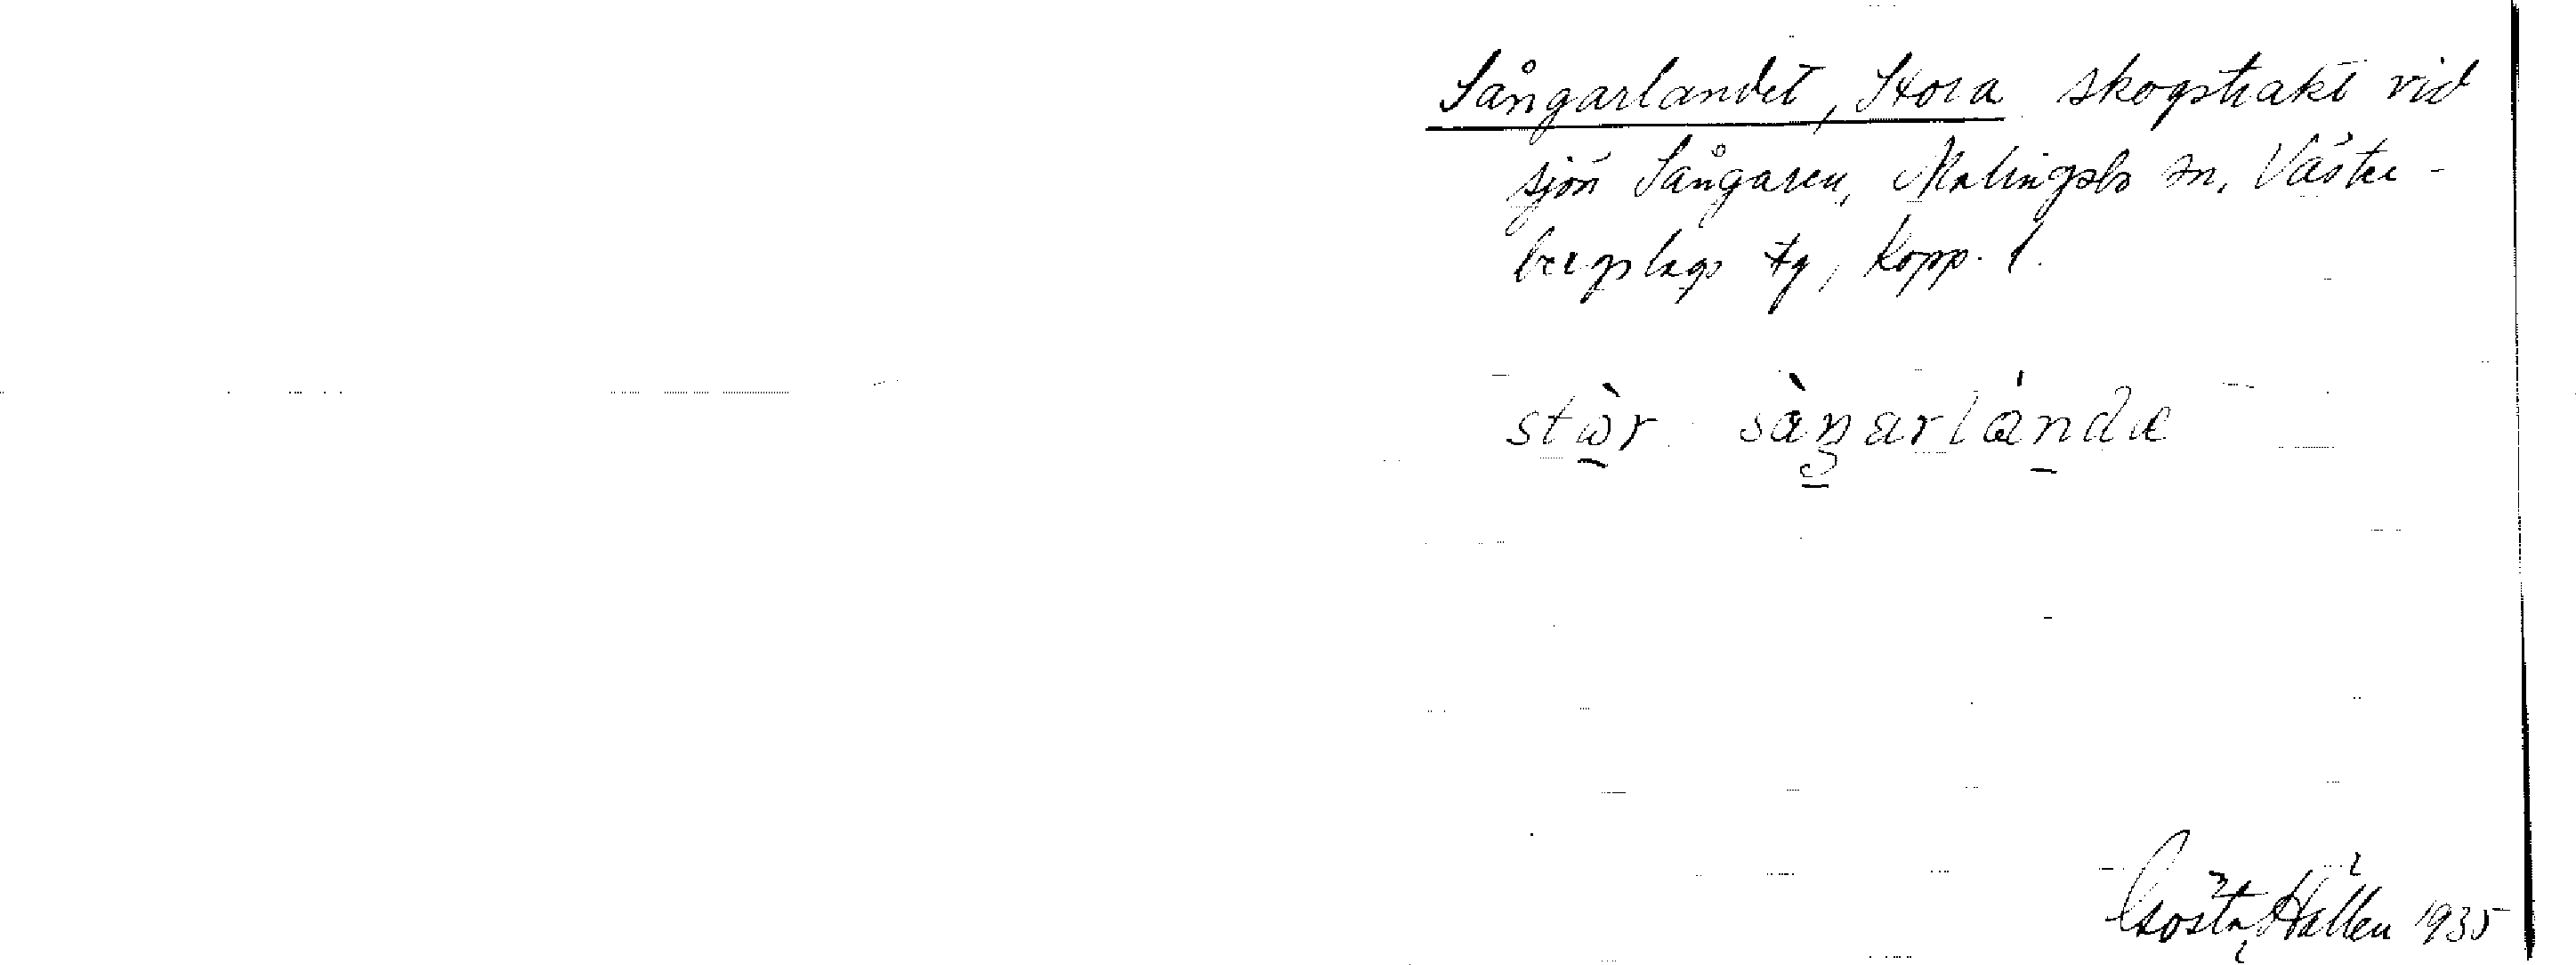 Sångarlandet, Stora skogstrakt vid
sjön Sångaren, Malingsbo sn, Väster-
bergslags tg, Kopp. l.
stòr sàŋarlánda
Gösta Hallen 1935